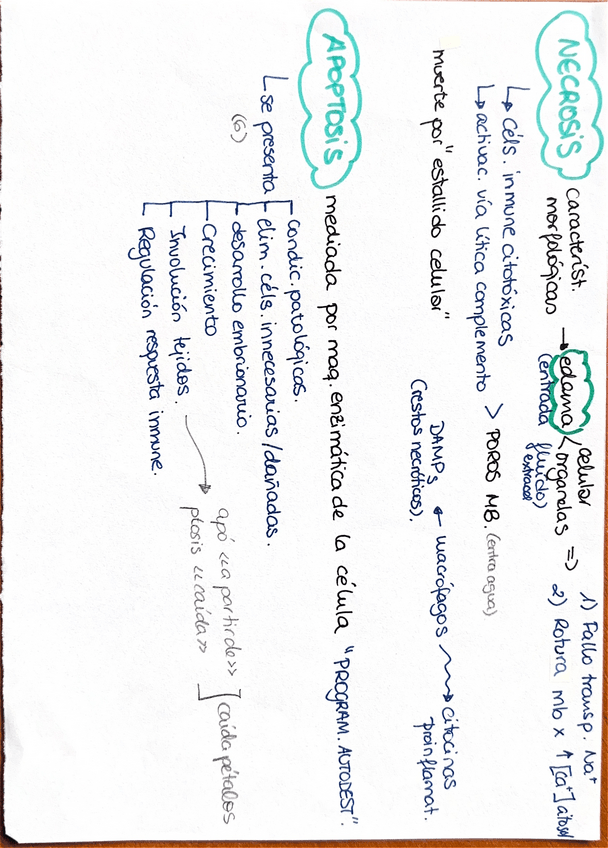 NECROSIS
característ.
morfológicas → edema < celular
organelas =>
(entrada fluido)
extracel
1) Fallo transp. Na+
2) Rotura mb x ↑ [ca+] citosol
↳ céls. inmune citotóxicas
↳ activac. vía lítica complemento > POROS MB. (entra agua)
muerte por "estallido celular"
DAMPs ← macrófagos → citocinas
(restos necróticos). proinflamat.
APOPTOSIS mediada por maq. enzimática de la célula "PROGRAM. AUTODEST".
↳ se presenta
(6)
condic. patológicas.
elim. céls. innecesarias / dañadas.
desarrollo embrionario.
Crecimiento
Involución tejidos.
Regulación respuesta inmune.
apó <<a partir de>>
ptosis <<caída>>
caída pétalos